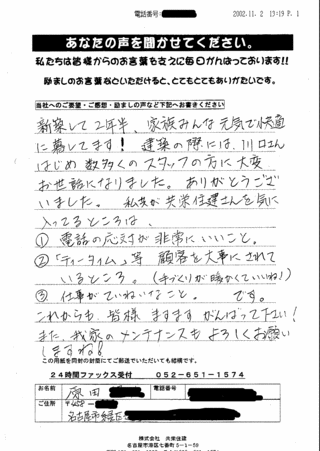 電話番号:
2002.11. 2 13:19 P. 1
あなたの声を聞かせてください。
私たちは皆様からのお言葉をささえに毎日がんばっております!!
励ましのお言葉などいただけると、とてもとてもありがたいです。
当社へのご要望・ご感想・励ましの声など下記へお書きください
新築して2年半、家族みんな元気で快適
に暮してます! 建築の際には、川口さん
はじめ 数多くのスタッフの方に大変
お世話になりました。ありがとうござ
いました。 私共が共栄住建さんを気に
入ってるところは、
① 電話の応対が非常にいいこと。
② 「ティータイム」等 顧客を大事にされて
いるところ。(手づくりが暖かくていいね!)
③ 仕事がていねいなこと。 です。
これからも、皆様 ますます がんばって下さい!
また、我家のメンテナンスも よろしくお願い
しますね!
この用紙を同封の封筒にてご郵送でいただいても結構です。
24時間ファックス受付 052-651-1574
お名前 原田
電話番号
ご住所 〒458-
名古屋市緑区
株式会社 共栄住建
名古屋市港区七番町5-1-59